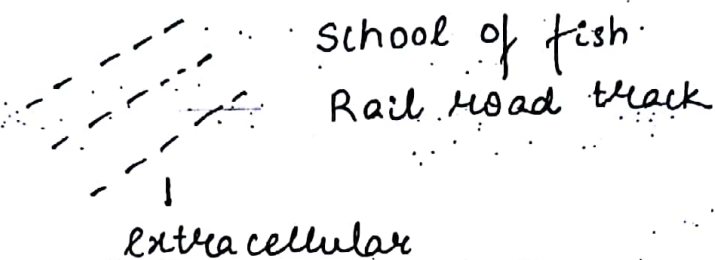 School of fish.
Rail road track
extracellular